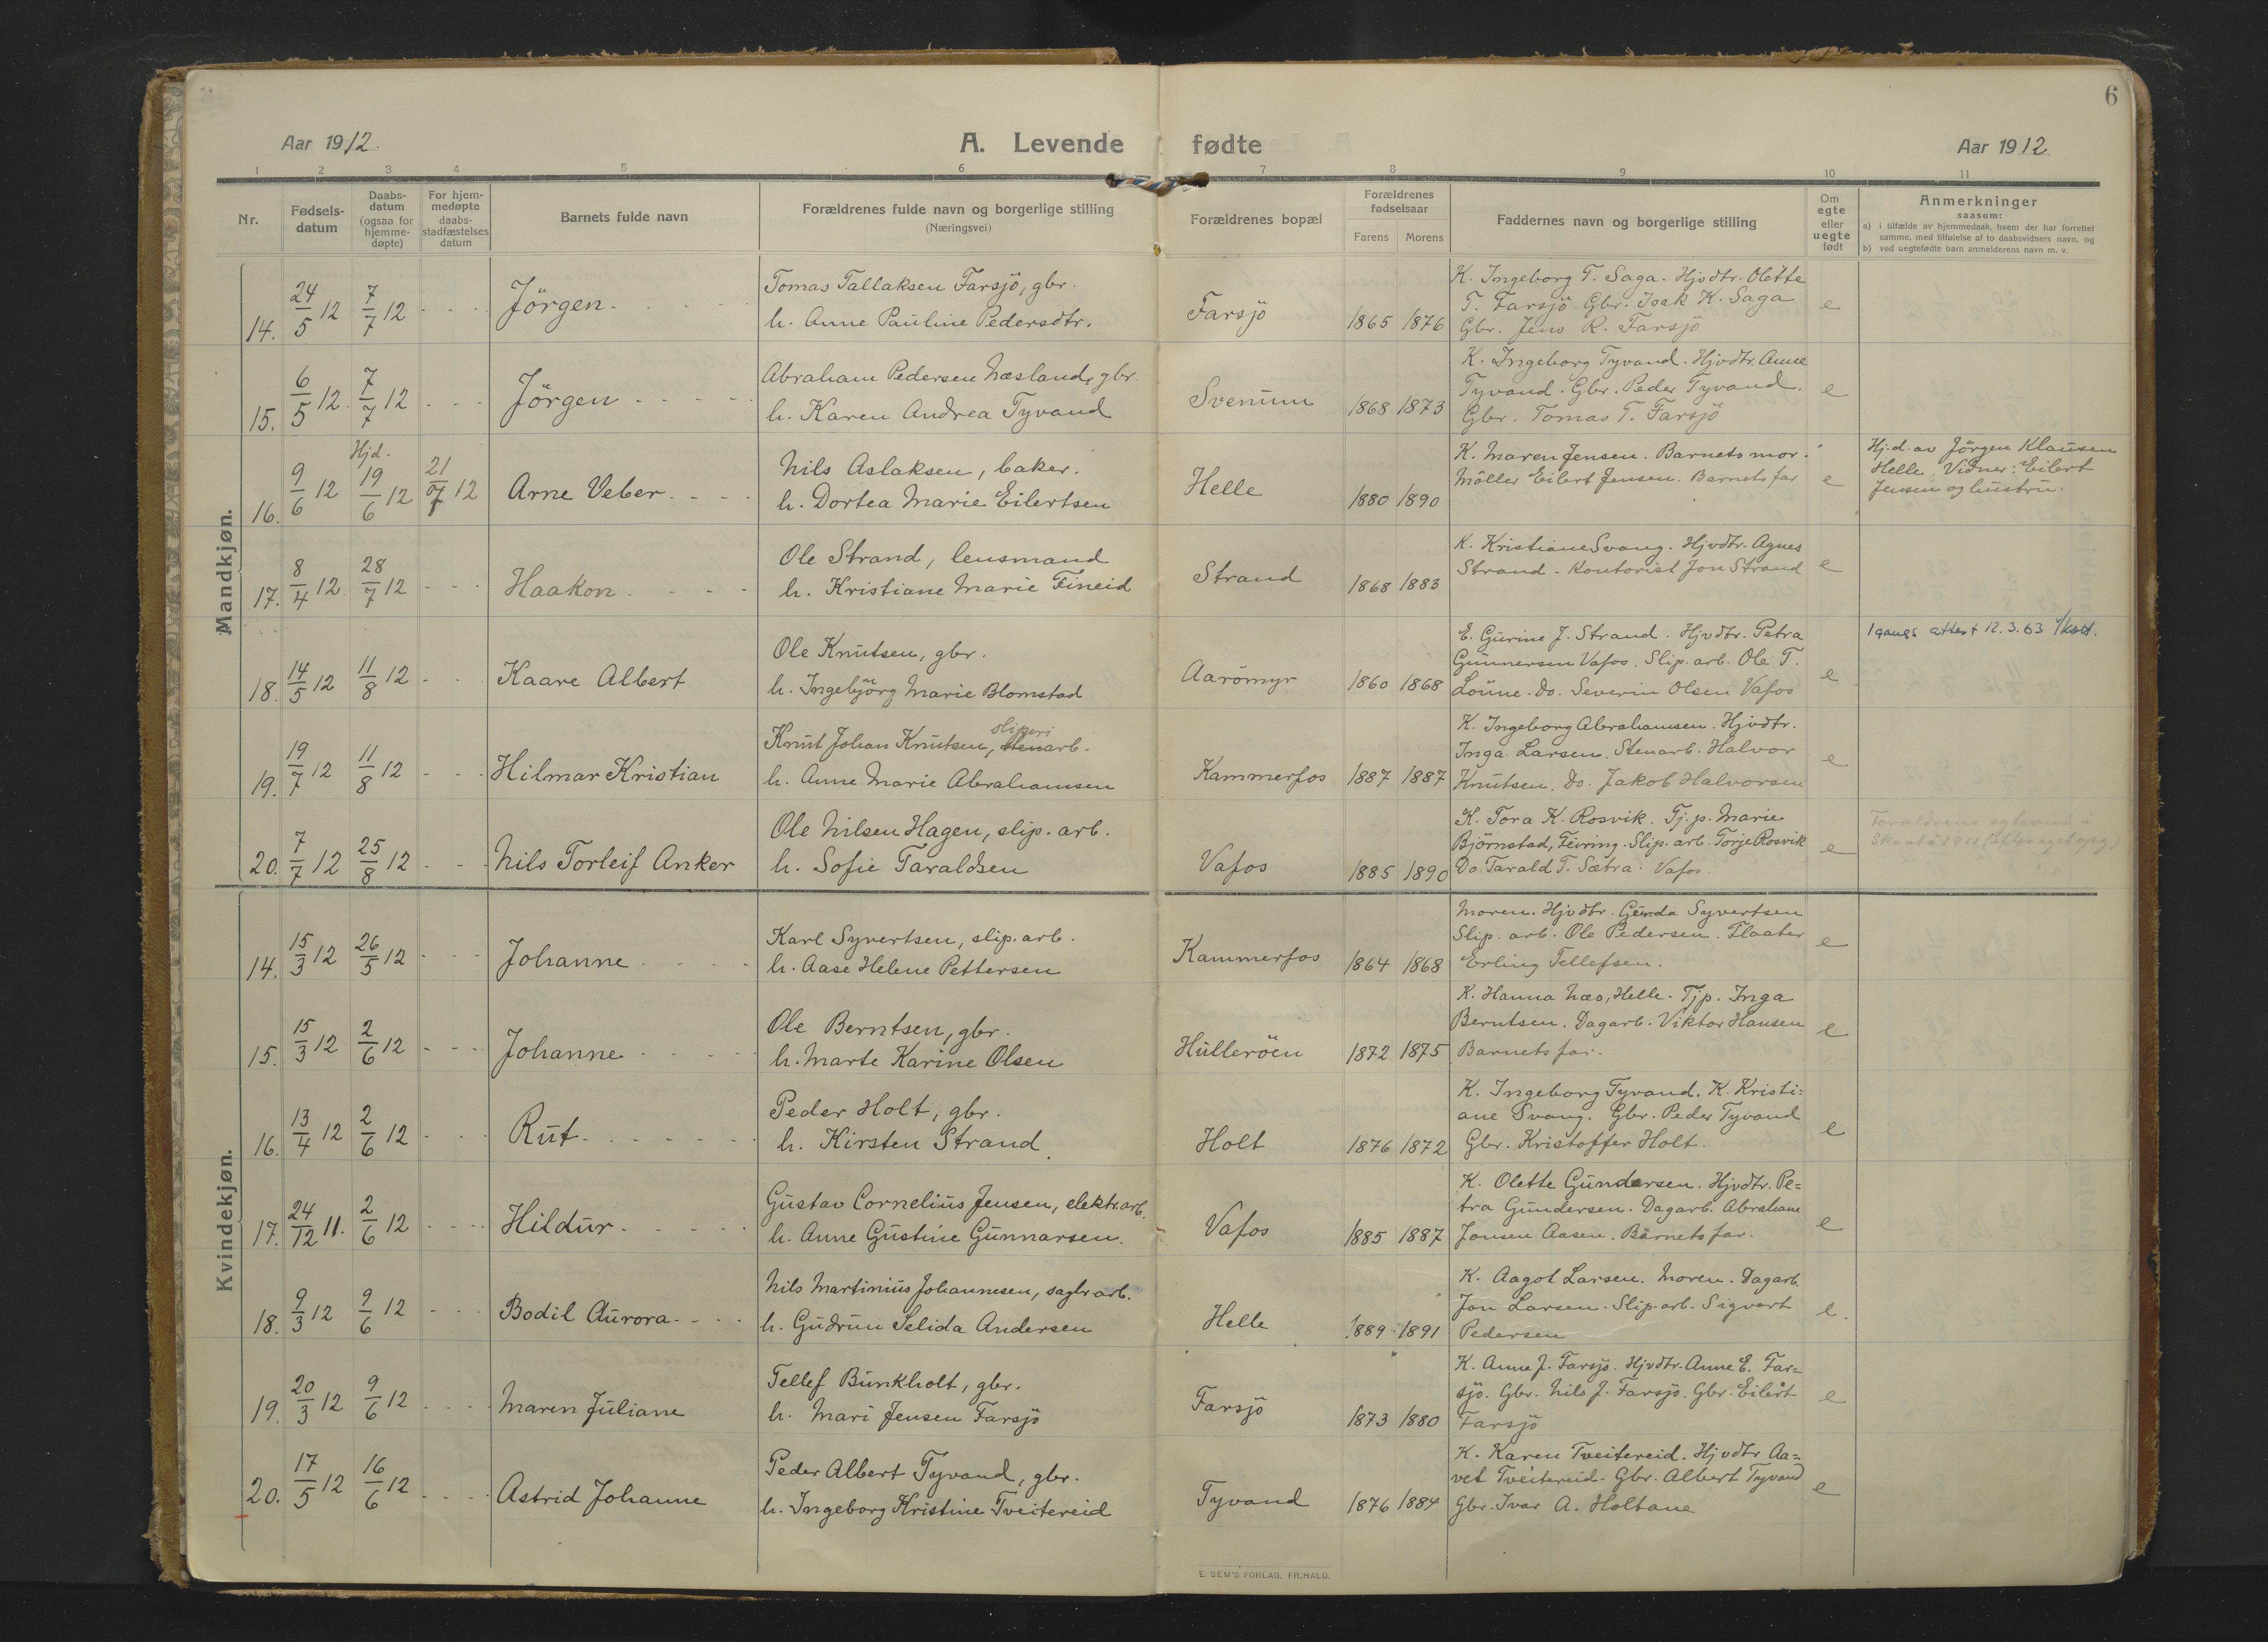 6
Aar 1912.
A. Levende fødte
Aar 1912
1 2 3 4 5 6 7 8 9 10 11
Nr.
Fødsels-
datum
Daabs-
datum
(ogsaa for
hjemme-
døpte)
For hjem-
medøpte
daabs-
stadfæstelses
datum
Barnets fulde navn
Forældrenes fulde navn og borgerlige stilling
(Næringsvei)
Forældrenes bopæl
Forældrenes
fødselsaar
Farens Morens
Faddernes navn og borgerlige stilling
Om
egte
eller
uegte
født
Anmerkninger
saasom:
a) i tilfælde av hjemmedaab, hvem der har forrettet
samme, med tilføielse af to daabsvidners navn, og
b) ved uegtefødte barn anmelderens navn m. v.
Mandkjøn.
14. 24/5 12 7/7 12 - - - Jörgen. - - -
Tomas Tallaksen Farsjö, gbr.
h. Anne Pauline Pedersdtr.
Farsjö 1865 1876
K. Ingeborg T. Saga. Hjvdtr. Olette
T. Farsjö. Gbr. Isak K. Saga
Gbr. Jens R. Farsjö
e
15. 6/5 12. 7/7 12 - - - Jörgen - - - - -
Abraham Pedersen Næsland, gbr.
h. Karen Andrea Tyvand
Svenum 1868 1873
K. Ingeborg Tyvand. Hjvdtr. Anne
Tyvand. Gbr. Peder Tyvand.
Gbr. Tomas T. Farsjö
e
16. 9/6 12 Hjd. 19/6 12 21/7 12 Arne Veber. - - -
Nils Aslaksen, baker.
h. Dortea Marie Eilertsen
Helle 1880 1890
K. Maren Jensen. Barnets mor.
Möller Eilert Jensen. Barnets far
e
Hj.d. av Jörgen Klausen
Helle. Vidner: Eilert
Jensen og hustru.
17. 8/4 12. 28/7 12 - - - Haakon. - - - -
Ole Strand, lensmand
h. Kristiane Marie Fineid
Strand 1868 1883
K. Kristiane Svang. Hjvdtr. Agnes
Strand - Kontorist Jon Strand
e
18. 14/5 12 11/8 12 - - - Kaare Albert
Ole Knutsen, gbr.
h. Ingebjörg Marie Blomstad
Aarömyr 1860 1868
E. Gurine J. Strand. Hjvdtr. Petra
Gunnersen Vafos. Slip. arb. Ole T.
Loune. Do. Severin Olsen Vafos
e
1 gangs attest 12.3.63
19. 19/7 12 11/8 12 - - - Hilmar Kristian
sliperi
Knut Johan Knutsen, stenarb.
h. Anne Marie Abrahamsen
Kammerfos 1887 1887
K. Ingeborg Abrahamsen. Hjvdtr.
Inga Larsen. Stenarb. Halvor
Knutsen. Do. Jakob Halvorsen
e
20. 7/7 12 25/8 12 - - - Nils Torleif Anker
Ole Nilsen Hagen, slip. arb.
h. Sofie Taraldsen
Vafos 1885 1890
K. Tora K. Rosvik. Tj. p. Marie
Björnstad, Feiring. Slip. arb. Torje Rosvik
Do. Tarald T. Sætra. Vafos.
e
Foraldrene
Kvindekjøn.
14. 15/3 12 26/5 12 - - - Johanne. - - - -
Karl Syvertsen, slip. arb.
h. Aase Helene Pettersen
Kammerfos 1864 1868
Moren. Hjvdtr. Gunda Syvertsen
Slip. arb. Ole Pedersen. Flaater
Erling Tellefsen.
e
15. 15/3 12 2/6 12 - - - Johanne - - - - -
Ole Berntsen, gbr.
h. Marte Karine Olsen
Hulleröen 1872 1875
K. Hanna Næs, Helle. Tj p. Inga
Berntsen. Dagarb. Viktor Hansen
Barnets far.
e
16. 13/4 12 2/6 12 - - - Rut. - - - - - -
Peder Holt, gbr.
h. Kirsten Strand.
Holt 1876 1872
K. Ingeborg Tyvand. K. Kristi=
ane Svang. Gbr. Peder Tyvand
Gbr. Kristoffer Holt.
e
17. 24/12 11. 2/6 12 - - - - Hildur. - - - -
Gustav Cornelius Jensen, elektr.arb.
h. Anne Gustine Gunnarsen.
Vafos 1885 1887
K. Olette Gundersen. Hjvdtr. Pe=
tra Gundersen. Dagarb. Abraham
Jonsen Aasen. Barnets far.
e
18. 9/3 12 9/6 12 - - - Bodil Aurora. - - -
Nils Martinius Johannesen, sagbr.arb.
h. Gudrun Selida Andersen
Helle 1889 1891
K. Aagot Larsen. Moren. Dagarb.
Jon Larsen. Slip. arb. Sigvart
Pedersen
e.
19. 20/3 12 9/6 12 - - - - Maren Juliane
Tellef Bunkholt, gbr.
h. Mari Jensen Farsjö
Farsjö 1873 1880
K. Anne J. Farsjö. Hjvdtr. Anne E. Far=
sjö. Gbr. Nils J. Farsjö. Gbr. Eilert
Farsjö
e
20. 17/5 12 16/6 12 - - - - Astrid Johanne
Peder Albert Tyvand, gbr.
h. Ingeborg Kristine Tveitereid
Tyvand 1876 1884
K. Karen Tveitereid. Hjvdtr. Aa=
vet Tveitereid. Gbr. Albert Tyvand
Gbr. Ivar A. Holtane
e
E. SEM'S FORLAG, FR.HALD.